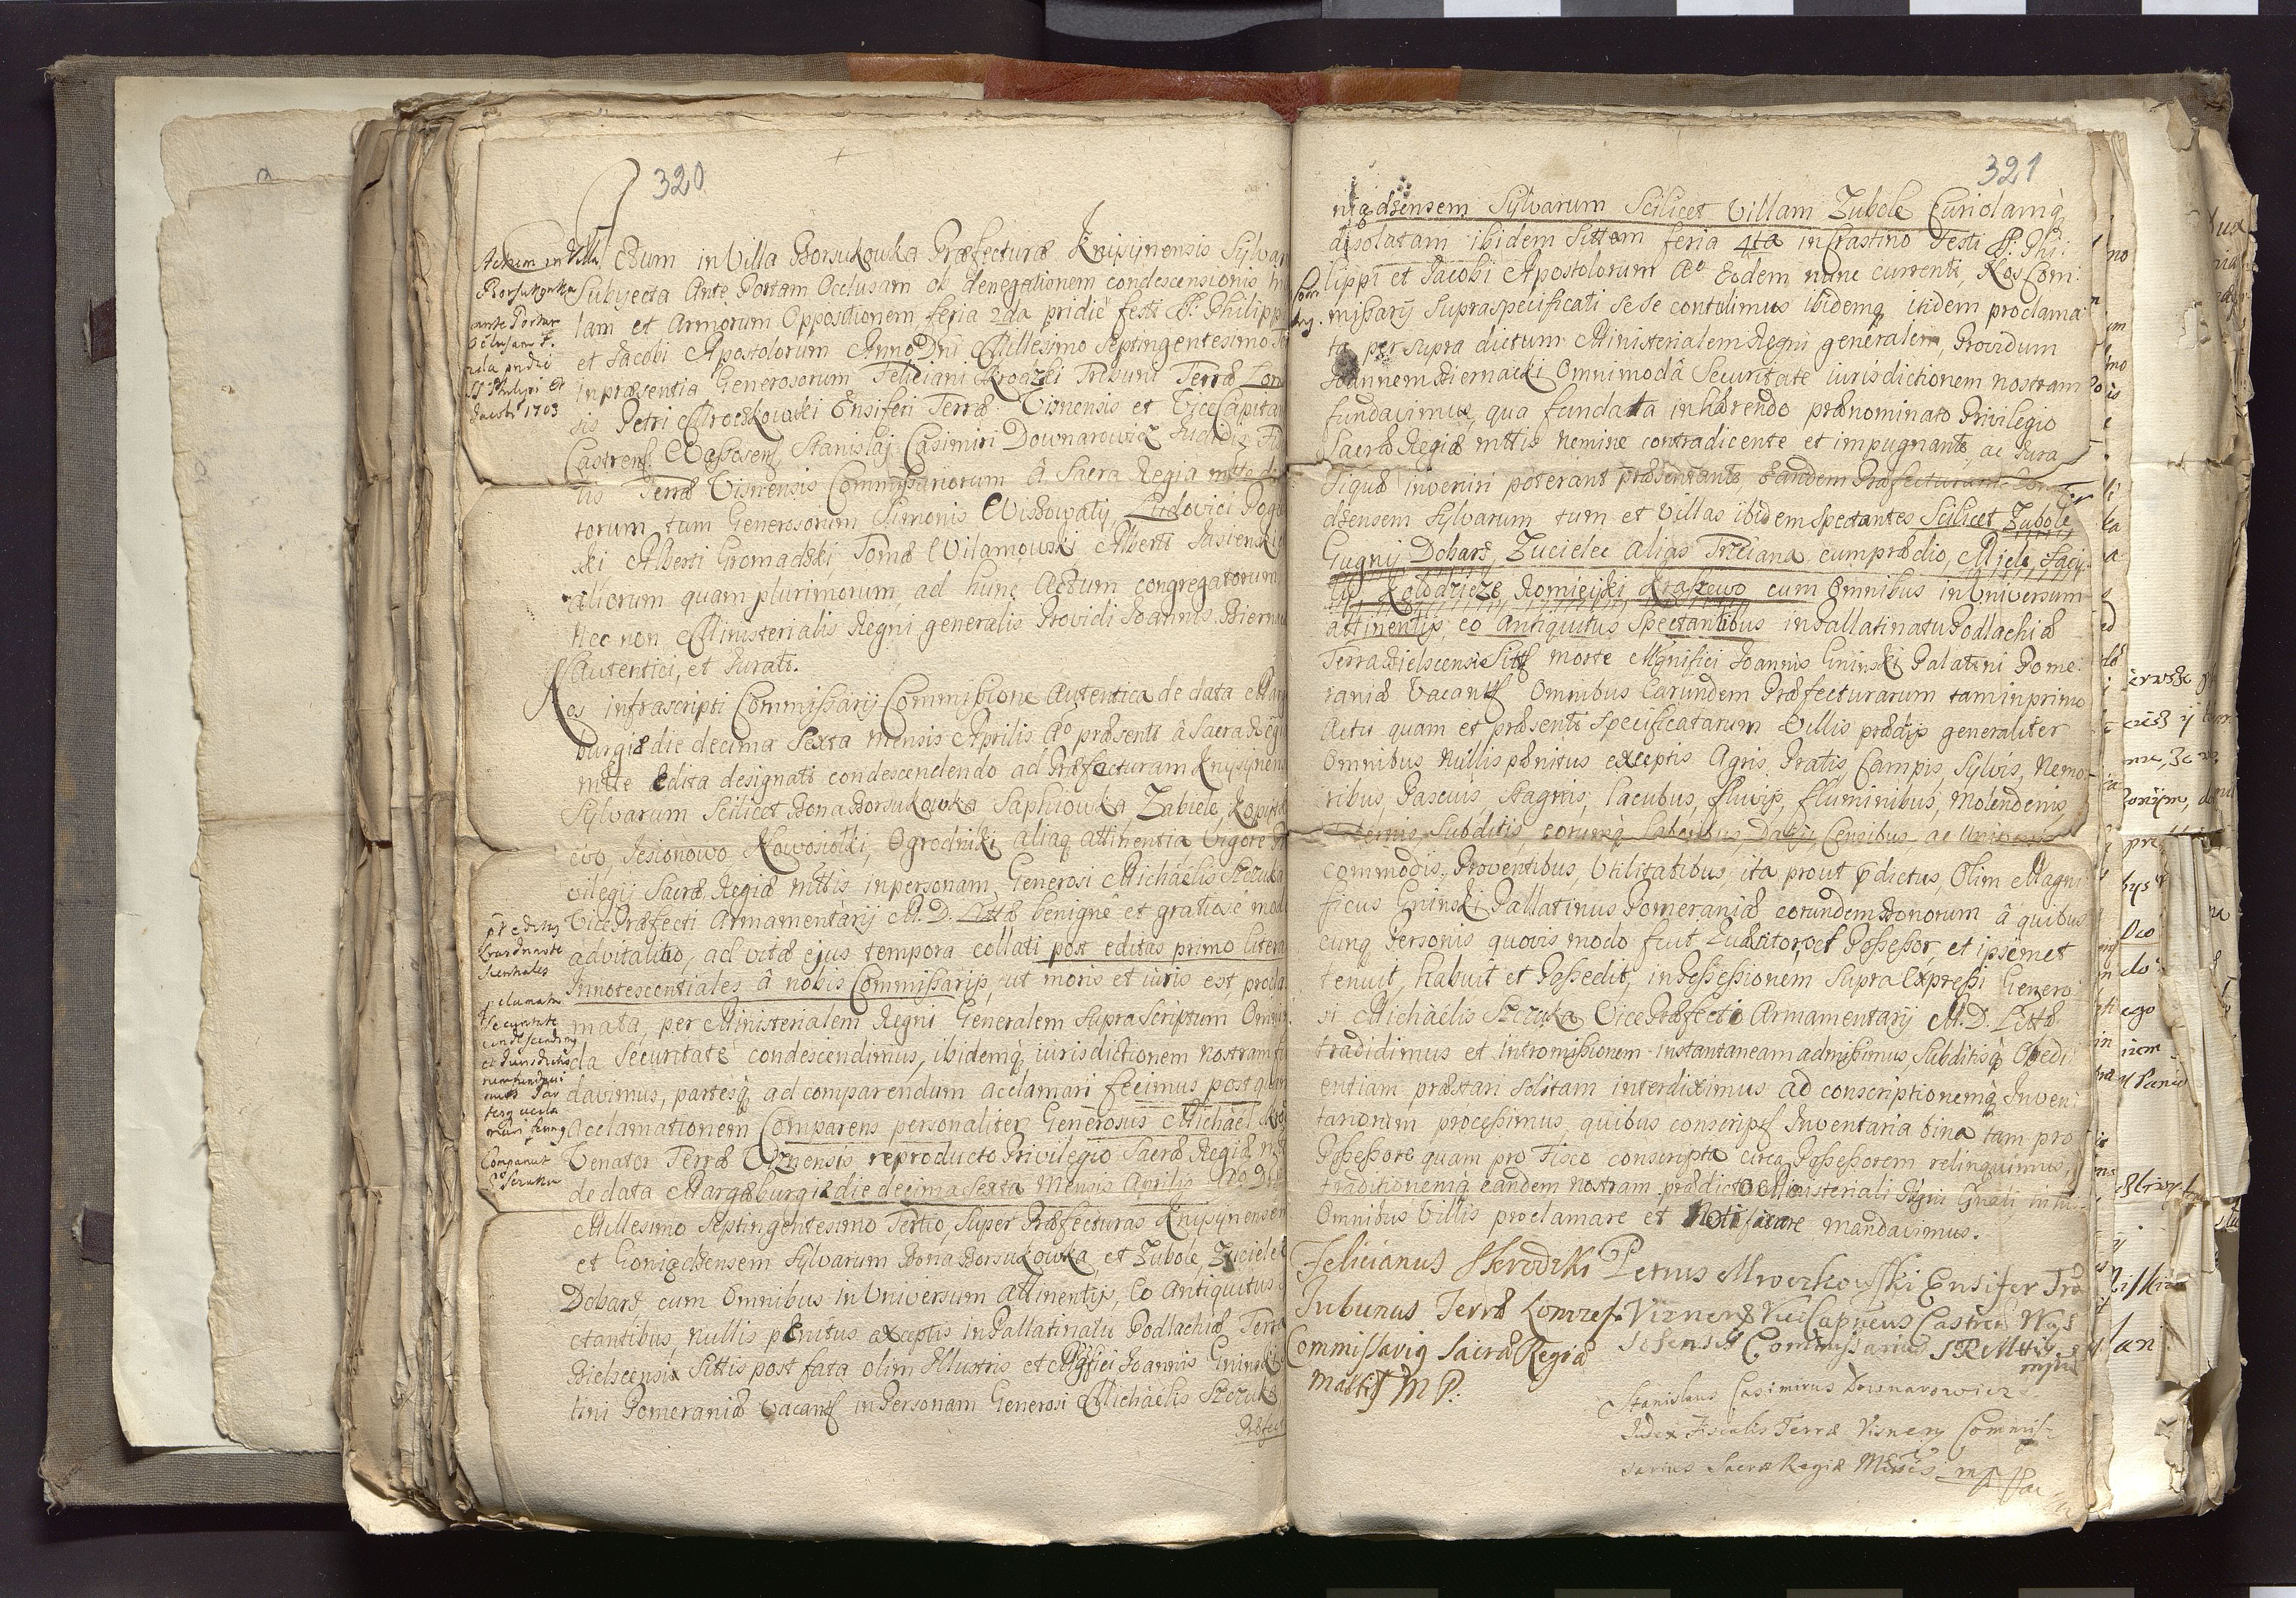 320
Actum in Villa Borsukowka Præfecturæ Knisinensis Sylvar
Subjecta Ante Portam Occlusam ob denegationem condescensionis in
lam et Armorum Oppositionem feria 2da pridie festi SS. Philipp
et Jacobi Apostolorum Anno Dni Millesimo Septingentesimo
in præsentia Generosorum Feliciani Skrodzki Tribuni Terræ Lom
sis Petri Mroczkowski Ensiferi Terræ Visnensis et ViceCapitan
Castrens. Wąssosens. Stanislaj Casimiri Downarowicz Judicis Fis
lis Terræ Visnensis Commissariorum â Sacra Regia mtte d
torum, tum Generosorum Simonis Wiszowaty, Ludovici
ski Alberti Gromadzki, Tomæ Wilamowski Alberti Jasienski
aliorum quam plurimorum, ad hunc Actum congregatorum
Nec non Ministerialis Regni generalis Providi Joannis Biern
Autentici, et Jurati.
Nos infrascripti Commissarij Commissione Autentica de data Mar
burgiæ die decima Sexta mensis Aprilis Ao præsenti â Sacra Regia
mtte Edita designati condescendendo ad Præfecturam Knysynen
Sylvarum Scilicet Bona Borsukowka Saphiowka, Zabiele, Kopisk
evo, Jesionowo Nowosiołki, Ogrodniki aliaq attinentia Vigore Pri
vilegij Sacræ Regiæ Mttis in personam Generosi Michaelis Szczuka
VicePræfecti Armamentarij M. D. Littæ benignè et gratiosè mod
advitalitio, ad vitæ ejus tempora collati post editas primo litera
Innotescentiales â nobis Commissarijs, ut moris et iuris est procla
mata, per Ministerialem Regni Generalem SupraScriptum Omni
da Securitate condescendimus, ibidemq iurisdictionem nostram f
davimus, partesq ad comparendum acclamari fecimus post quam
acclamationem Comparens personaliter Generosus Michael
Venator Terræ Viznensis reproducto Privilegio Sacræ Regiæ m
de data Margæburgiæ die decima Sexta Mensis Aprilis Ao Dni
Millesimo Septingentesimo Tertio, Super Præfecturas Knisynensem
et Goniądzensem Sylvarum Bona Borsukowka et Zubole, Zuciele
Dobarz, cum Omnibus in Universum Attinentijs, Eo Antiquitus
ctantibus, nullis penitus exceptis in Pallatinatu Podlachiæ Terra
Bielscensi Sittis post fata olim Illustris et Mgfici Joannis Gninski
tini Pomeraniæ Vacants in Personam Generosi Michaelis Szczuka
Præfec
Actum in Villa
Borsukowka
ante Portam
Oclusam F.
2da pridie
SS Philipi et
Jacobi 1703
Securitate
condescendimus
et Jurisdictio
Comparuit
321
niądzensem Sylvarum Scilicet Villam Zubole Curiolamq
disolatam ibidem Sittam feria 4ta in Crastino Festi SS. Phi:
lippi et Jacobi Apostolorum Ao Eodem nunc currenti, Nos Com:
missarij Supraspecificati Se Se contulimus ibidemq itidem proclama
ta per supra dictum Ministerialem Regni generalem, Providum
Joannem Biernacki Omnimodâ Securitate iurisdictionem nostram
fundavimus, qua fundata inhærendo prænominato Privilegio
Sacræ Regiæ mttis nemine contradicente et impugnante, ac Jura
Siquæ inveniri poterant præsentante Eandem Præfecturam Gonią
dzensem Sylvarum tum et Villas ibidem Spectantes Scilicet Zubole
Gugny Dobarz, Zucielec alias Trzciana cum prædio, Miele,
Kołodzieze, Romieyki, Kraszewo cum Omnibus in Universum
attinentijs eo antiquitus Spectantibus in Pallatinatu Podlachiæ
Terra Bielscensi Sittæ morte Mgnifici Joannis Gninski Palatini Pome:
raniæ Vacants Omnibus Earundem Præfecturarum tam in primo
Actu quam et præsenti specificatarum Villis prædijs generaliter
Omnibus Nullis penitus exceptis Agris, Pratis, Campis, Sylvis, Nemo:
ribus, Pascuis, Stagnis, lacubus, fluvijs, fluminibus, Molendinis,
Tabernis, Subditis, eorumq Laboribus, Datijs, Censibus, ac Universis
commodis, Proventibus, Utilitatibus, ita prout prædictus, Olim Magni
ficus Gninski Pallatinus Pomeraniæ eorundem Bonorum â quibus
cunq Personis quovis modo fuit Quæsitor, et Possessor, et ipsemet
tenuit, habuit et Possedit, in Possessionem Supra Expressi Genero
si Michaelis Szczuka VicePræfecti Armamentarij M.D. Littæ
tradidimus et Intromissionem instantaneam admisimus, Subditisq Obedi
entiam præstari solitam interdiximus ad conscriptionemq Inven
tariorum processimus, quibus conscripts Inventaria bina tam pro
Possessore quam pro Fisco conscripta circa Possessorem relinquimus,
traditionemq eandem nostram prædicto Ministeriali Regni Gnali, in hu
Omnibus Villis proclamare et Notificare mandavimus.
Felicianus Skrodzki
Tribunus Terræ Lomzes.
Commissarig Sacræ Regiæ
Mattis MP.
Petrus Mroczkowski Ensifer Træ
Viznens. ViceCapneus Castren Wąs
sosensis Commissarius SRMttis
mpra
Stanislaus Casimirus Downarowicz
Judex Fiscalis Terræ Visnens. Commis-
sarius Sacræ Regiæ Mttis mp